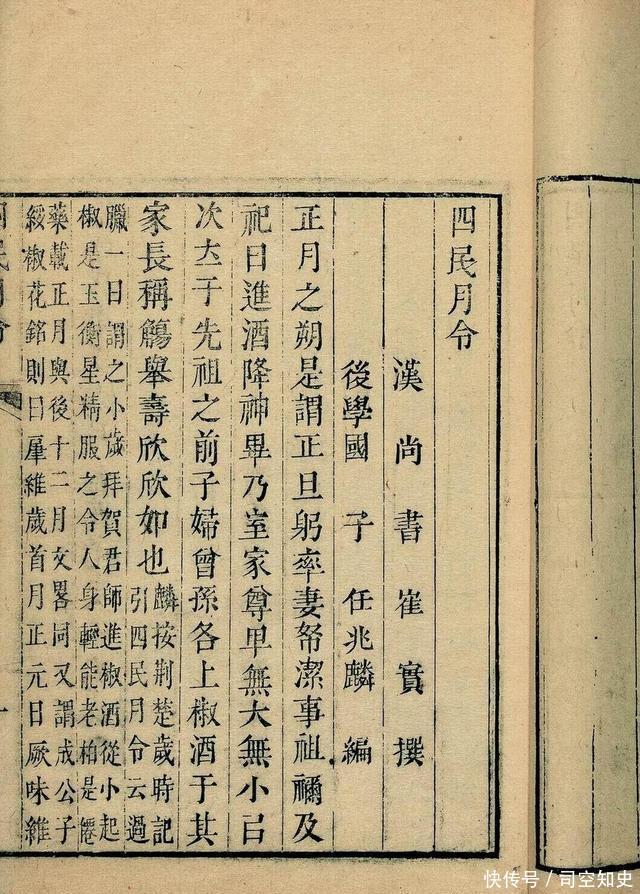 四民月令
漢尚書崔實撰
後學國子任兆麟編
正月之朔是謂正旦躬率妻帑潔事祖禰及
祀日進酒降神畢乃室家尊卑無大無小㠯
次于先祖之前子婦曾孫各上椒酒于其
家長稱觴舉壽欣欣如也
麟按荆楚歲時記
引四民月令云過
臘一日謂之小歲拜賀君師進椒酒從小起
椒是玉衡星精服之令人身輕能老柏是僊
藥載正月與後十二月文畧同又謂成公子
綏椒花銘則曰維歲首月正元日厥味維
快传号／司空知史